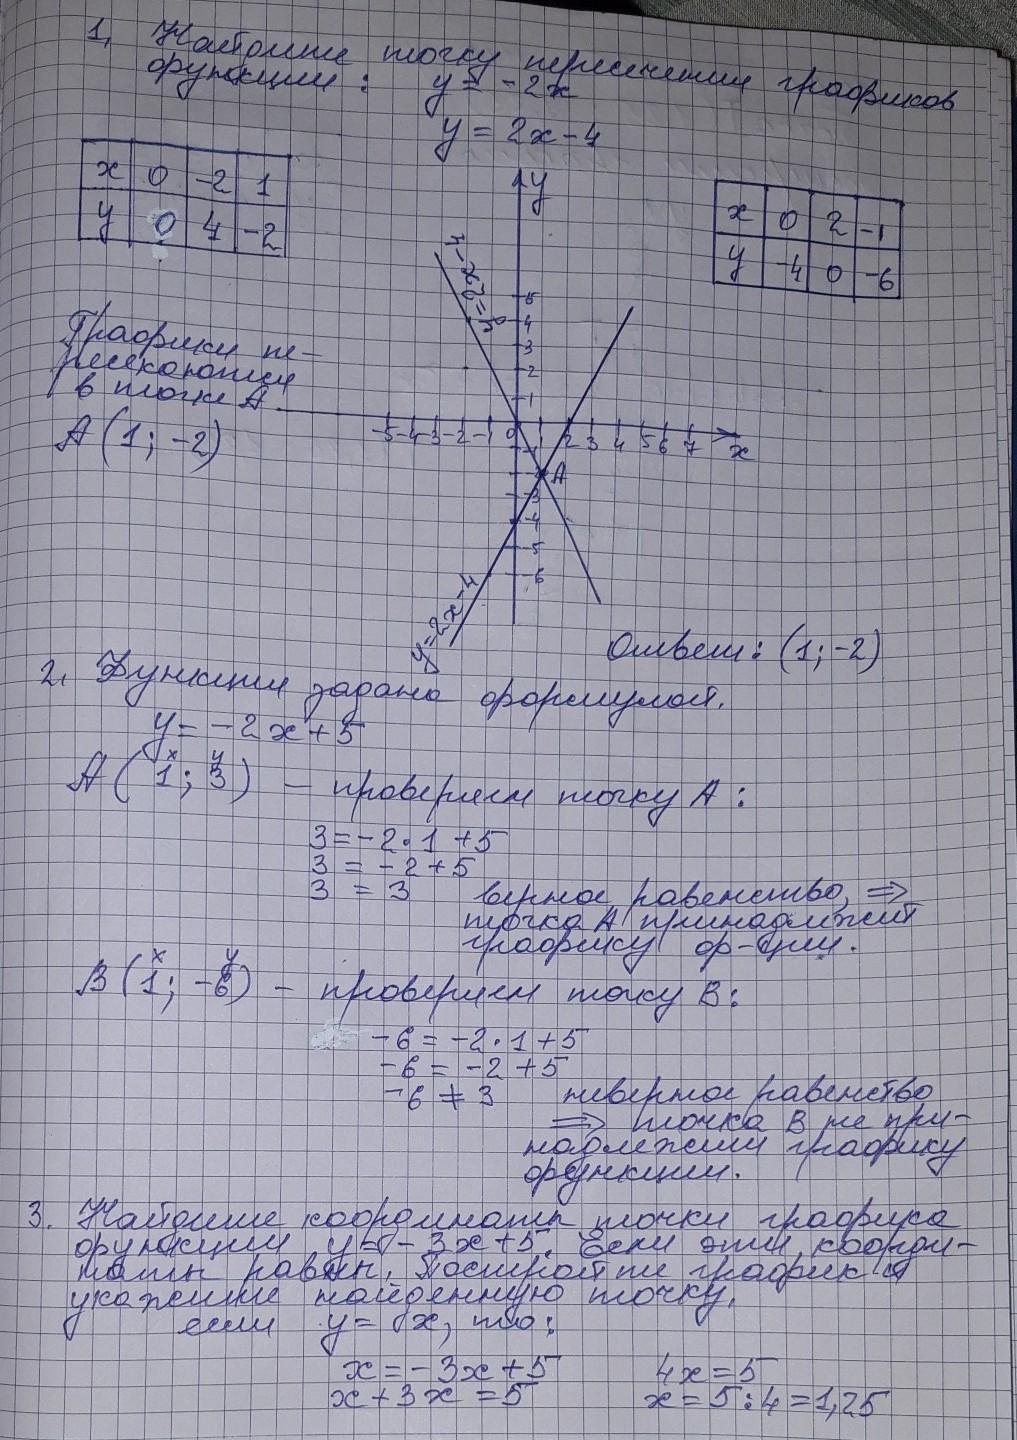 1, Найдите точку пересечения графиков
функции: y = -2x
y = 2x-4
x 0 -2 1
y 0 4 -2
y
x 0 2 -1
y -4 0 -6
y=-2x
5
4
3
2
1
Графики пе-
ресекаются
в точке A.
A(1; -2)
-5 -4 -3 -2 -1 0 1 2 3 4 5 6 7
x
-1
A
-3
-4
-5
-6
y=2x-4
Ответ: (1; -2)
2, Функция задана формулой.
y = -2x+5
x y
A(1; 3) – проверяем точку A:
3 = -2·1 +5
3 = -2+5
3 = 3 верное равенство, ⇒
точка A принадлежит
графику ф-ции.
x y
B(1; -6) – проверяем точку B:
-6 = -2·1+5
-6 = -2 +5
-6 ≠ 3 неверное равенство
⇒ точка B не при-
надлежит графику
функции.
3. Найдите координаты точки графика
функции y = -3x+5. Если эти коорди-
наты равны. Постройте график и
укажите найденную точку.
если y = x, то:
x = -3x+5 4x = 5
x+3x = 5 x = 5:4 = 1,25